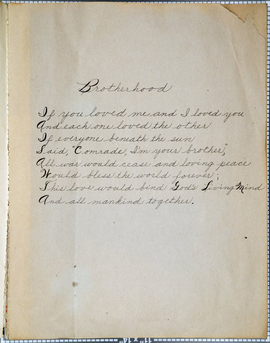 Brotherhood
If you loved me and I loved you
And each one loved the other
If everyone beneath the sun
Said, "Comrade, I'm your brother,"
All war would cease and loving peace
Would bless the world forever;
This love would bind God's Living Mind
And all mankind together.